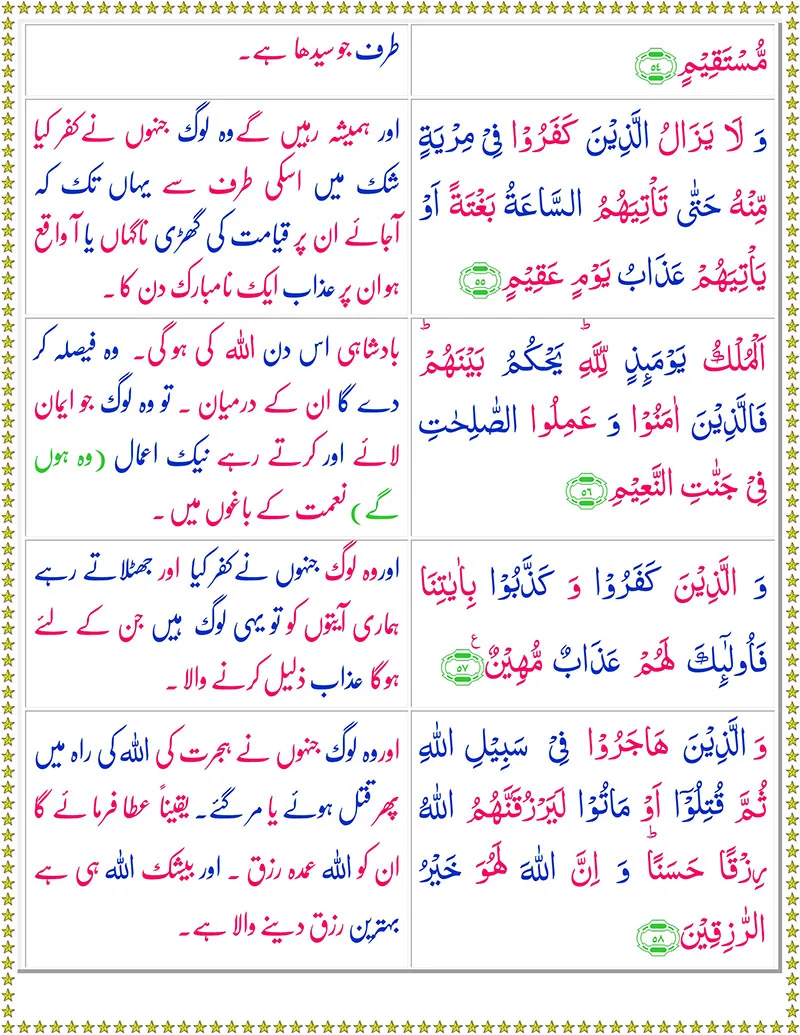 مُّسْتَقِيْمٍ ﴿٥٤﴾
طرف جو سیدھا ہے۔
وَ لَا يَزَالُ الَّذِيْنَ كَفَرُوْا فِيْ مِرْيَةٍ
مِّنْهُ حَتّٰى تَاْتِيَهُمُ السَّاعَةُ بَغْتَةً اَوْ
يَاْتِيَهُمْ عَذَابُ يَوْمٍ عَقِيْمٍ ﴿٥٥﴾
اور ہمیشہ رہیں گے وہ لوگ جنہوں نے کفر کیا
شک میں اسکی طرف سے یہاں تک کہ
آجائے ان پر قیامت کی گھڑی ناگہاں یا آ واقع
ہو ان پر عذاب ایک نامبارک دن کا۔
اَلْمُلْكُ يَوْمَئِذٍ لِّلّٰهِ ؕ يَحْكُمُ بَيْنَهُمْ ؕ
فَالَّذِيْنَ اٰمَنُوْا وَ عَمِلُوا الصّٰلِحٰتِ
فِيْ جَنّٰتِ النَّعِيْمِ ﴿٥٦﴾
بادشاہی اس دن اللہ کی ہوگی۔ وہ فیصلہ کر
دے گا ان کے درمیان ۔ تو وہ لوگ جو ایمان
لائے اور کرتے رہے نیک اعمال (وہ ہوں
گے) نعمت کے باغوں میں ۔
وَ الَّذِيْنَ كَفَرُوْا وَ كَذَّبُوْا بِاٰيٰتِنَا
فَاُولٰٓئِكَ لَهُمْ عَذَابٌ مُّهِيْنٌ ﴿٥٧﴾ ع
اور وہ لوگ جنہوں نے کفر کیا اور جھٹلاتے رہے
ہماری آیتوں کو تو یہی لوگ ہیں جن کے لئے
ہوگا عذاب ذلیل کرنے والا ۔
وَ الَّذِيْنَ هَاجَرُوْا فِيْ سَبِيْلِ اللّٰهِ
ثُمَّ قُتِلُوْۤا اَوْ مَاتُوْا لَيَرْزُقَنَّهُمُ اللّٰهُ
رِزْقًا حَسَنًا ؕ وَ اِنَّ اللّٰهَ لَهُوَ خَيْرُ
الرّٰزِقِيْنَ ﴿٥٨﴾
اور وہ لوگ جنہوں نے ہجرت کی اللہ کی راہ میں
پھر قتل ہوئے یا مر گئے۔ یقیناً عطا فرمائے گا
ان کو اللہ عمدہ رزق ۔ اور بیشک اللہ ہی ہے
بہترین رزق دینے والا ہے۔